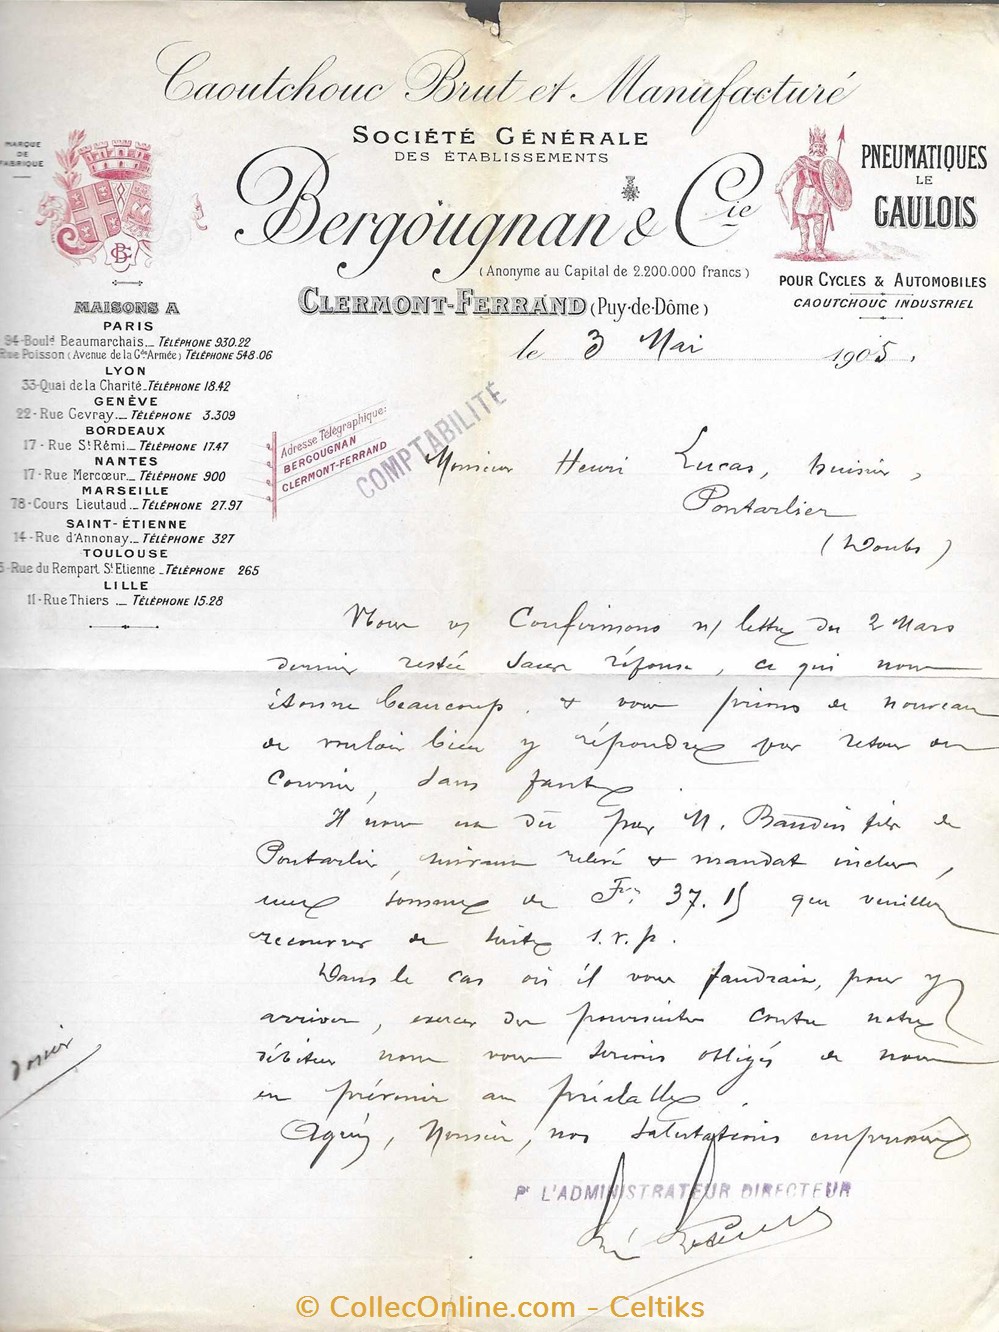 Caoutchouc Brut et Manufacturé
MARQUE
DE
FABRIQUE
SOCIÉTÉ GÉNÉRALE
DES ÉTABLISSEMENTS
Bergougnan & Cie
(Anonyme au Capital de 2.200.000 francs)
CLERMONT-FERRAND (Puy-de-Dôme)
PNEUMATIQUES
LE
GAULOIS
POUR CYCLES & AUTOMOBILES
CAOUTCHOUC INDUSTRIEL
GBC
MAISONS A
PARIS
94-Bould Beaumarchais._ TÉLÉPHONE 930.22
Rue Poisson (Avenue de la Gde Armée) TÉLÉPHONE 548.06
LYON
33-Quai de la Charité_TÉLÉPHONE 18.42
GENÈVE
22-Rue Gevray._ TÉLÉPHONE 3.309
BORDEAUX
17-Rue St Rémi._ TÉLÉPHONE 17.47
NANTES
17-Rue Mercœur._ TÉLÉPHONE 900
MARSEILLE
78-Cours Lieutaud._ TÉLÉPHONE 27.97
SAINT-ÉTIENNE
14-Rue d'Annonay._ TÉLÉPHONE 327
TOULOUSE
5-Rue du Rempart St Etienne_TÉLÉPHONE 265
LILLE
11-Rue Thiers ._ TÉLÉPHONE 15.28
le 3 Mai 1905.
Adresse Télégraphique:
BERGOUGNAN
CLERMONT-FERRAND
COMPTABILITÉ
Monsieur Henri Lucas, huissier,
Pontarlier
(Doubs)
Nous v/ Confirmons n/ lettre du 2 Mars
dernier restée sans réponse, ce qui nous
étonne beaucoup, & vous prions de nouveau
de vouloir bien y répondre par retour du
Courrier, sans faute.
Il nous est dû par M. Baudin fils de
Pontarlier, suivant relevé & mandat inclus,
une somme de Frs 37.15 que veuillez
recouvrer de suite s.v.p.
Dans le cas où il vous faudrait, pour y
arriver, exercer des poursuites contre notre
débiteur nous vous serions obligés de nous
en prévenir au préalable.
Agréez, Monsieur, nos salutations empressées
dossier
Pr L'ADMINISTRATEUR DIRECTEUR
© CollecOnline.com - Celtiks